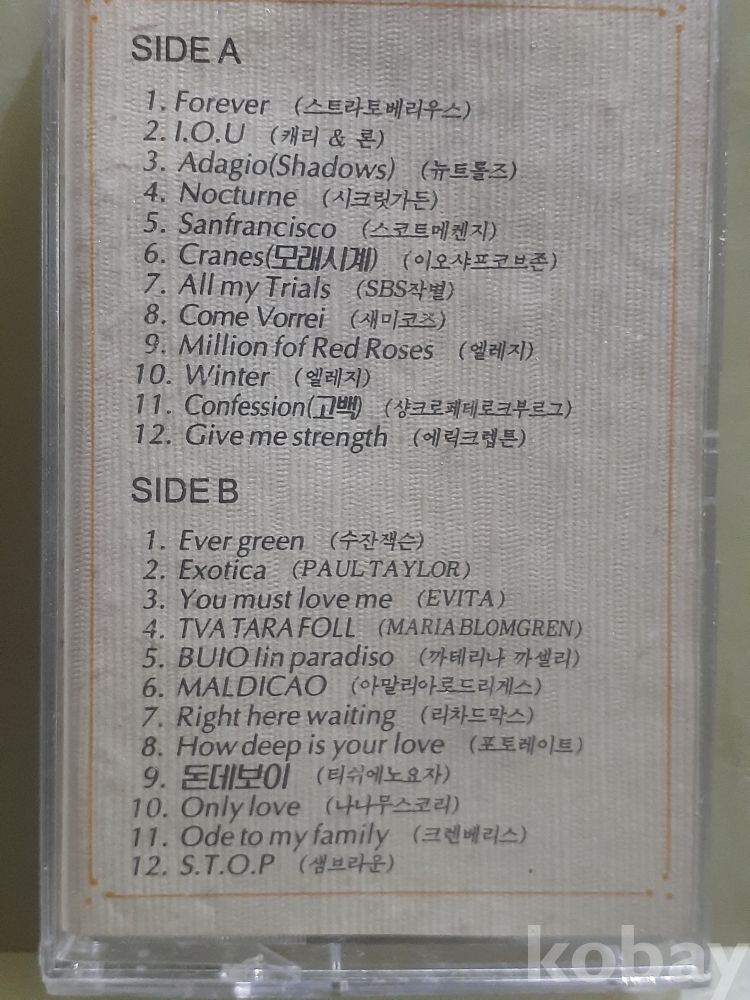 SIDE A
1. Forever (스트라토베리우스)
2. I.O.U (캐리 & 론)
3. Adagio(Shadows) (뉴트롤즈)
4. Nocturne (시크릿가든)
5. Sanfrancisco (스코트메켄지)
6. Cranes(모래시계) (이오샤프코브존)
7. All my Trials (SBS작별)
8. Come Vorrei (새미코즈)
9. Million fof Red Roses (엘레지)
10. Winter (엘레지)
11. Confession(고백) (샹크로페테로크부르그)
12. Give me strength (에릭크렙튼)
SIDE B
1. Ever green (수잔잭슨)
2. Exotica (PAUL TAYLOR)
3. You must love me (EVITA)
4. TVA TARA FOLL (MARIA BLOMGREN)
5. BUIO Iin paradiso (까테리나 까셀리)
6. MALDICAO (아말리아로드리게스)
7. Right here waiting (리차드막스)
8. How deep is your love (포토레이트)
9. 돈데보이 (티쉬에노요자)
10. Only love (나나무스코리)
11. Ode to my family (크렌베리스)
12. S.T.O.P (샘브라운)
kobay